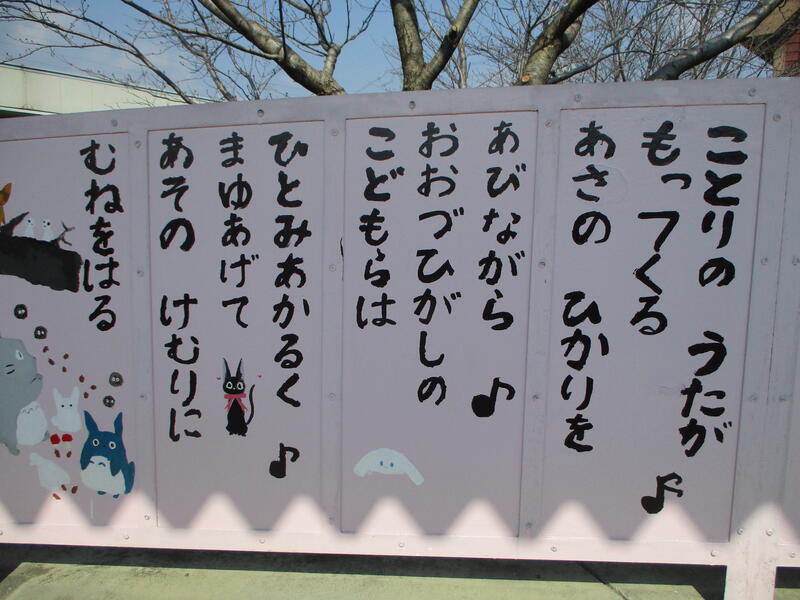 ことりの うたが
もってくる ♪
あさの ひかりを
あびながら ♪
おおづひがしの
こどもらは
ひとみあかるく ♪
まゆあげて
あその けむりに
むねをはる